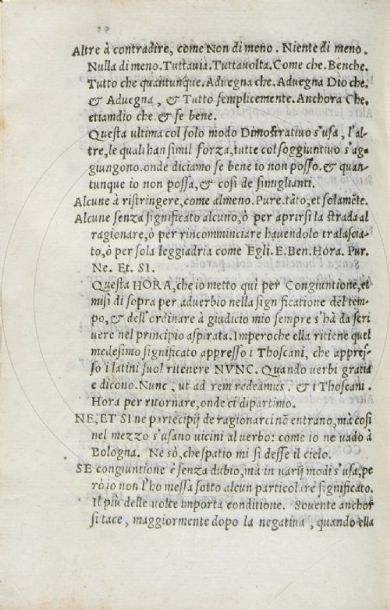 Altre à contradire, come Non di meno. Niente di meno.
Nulla di meno. Tuttauia. Tuttauolta. Come che. Benche.
Tutto che quantunque. Aduegna che. Aduegna Dio che.
& Aduegna, & Tutto semplicemente. Anchora Che,
etiamdio che. & se bene.
Questa ultima col solo modo Dimostratiuo s'usa, l'al-
tre, le quali han simil forza, tutte col soggiuntiuo s'ag-
giungono. onde diciamo se bene io non posso. & quan-
tunque io non possa, & cosi de simiglianti.
Alcune à ristringere, come almeno. Pure. tāto, et solamēte.
Alcune senza significato alcuno, ò per aprirsi la strada al
ragionare, ò per rincomminciare hauendolo tralascia-
to, ò per sola leggiadria come Egli. E. Ben. Hora. Pur.
Ne. Et. SI.
Questa HORA, che io metto qui per Congiuntione, et
misi di sopra per aduerbio nella significatione del tem-
po, & dell'ordinare à giudicio mio sempre s'hà da scri
uere nel principio aspirata. Imperoche ella ritiene quel
medesimo significato appresso i Thoscani, che appres-
so i latini suol ritenere NVNC. Quando uerbi gratia
e dicono. Nunc, ut ad rem redeamus. & i Thoscani.
Hora per ritornare, onde ci dipartimo.
NE, ET SI ne partecipij de ragionarci nō entrano, ma così
nel mezzo s'usano uicini al uerbo: come io ne uado à
Bologna. Ne sò, che spatio mi si desse il cielo.
SE congiuntione è senza dubio, ma in varij modi s'usa, pe
rò io non l'ho messa sotto alcun particolare significato.
Il più delle uolte importa conditione. Souente anchor
si tace, maggiormente dopo la negatiua, quando ella